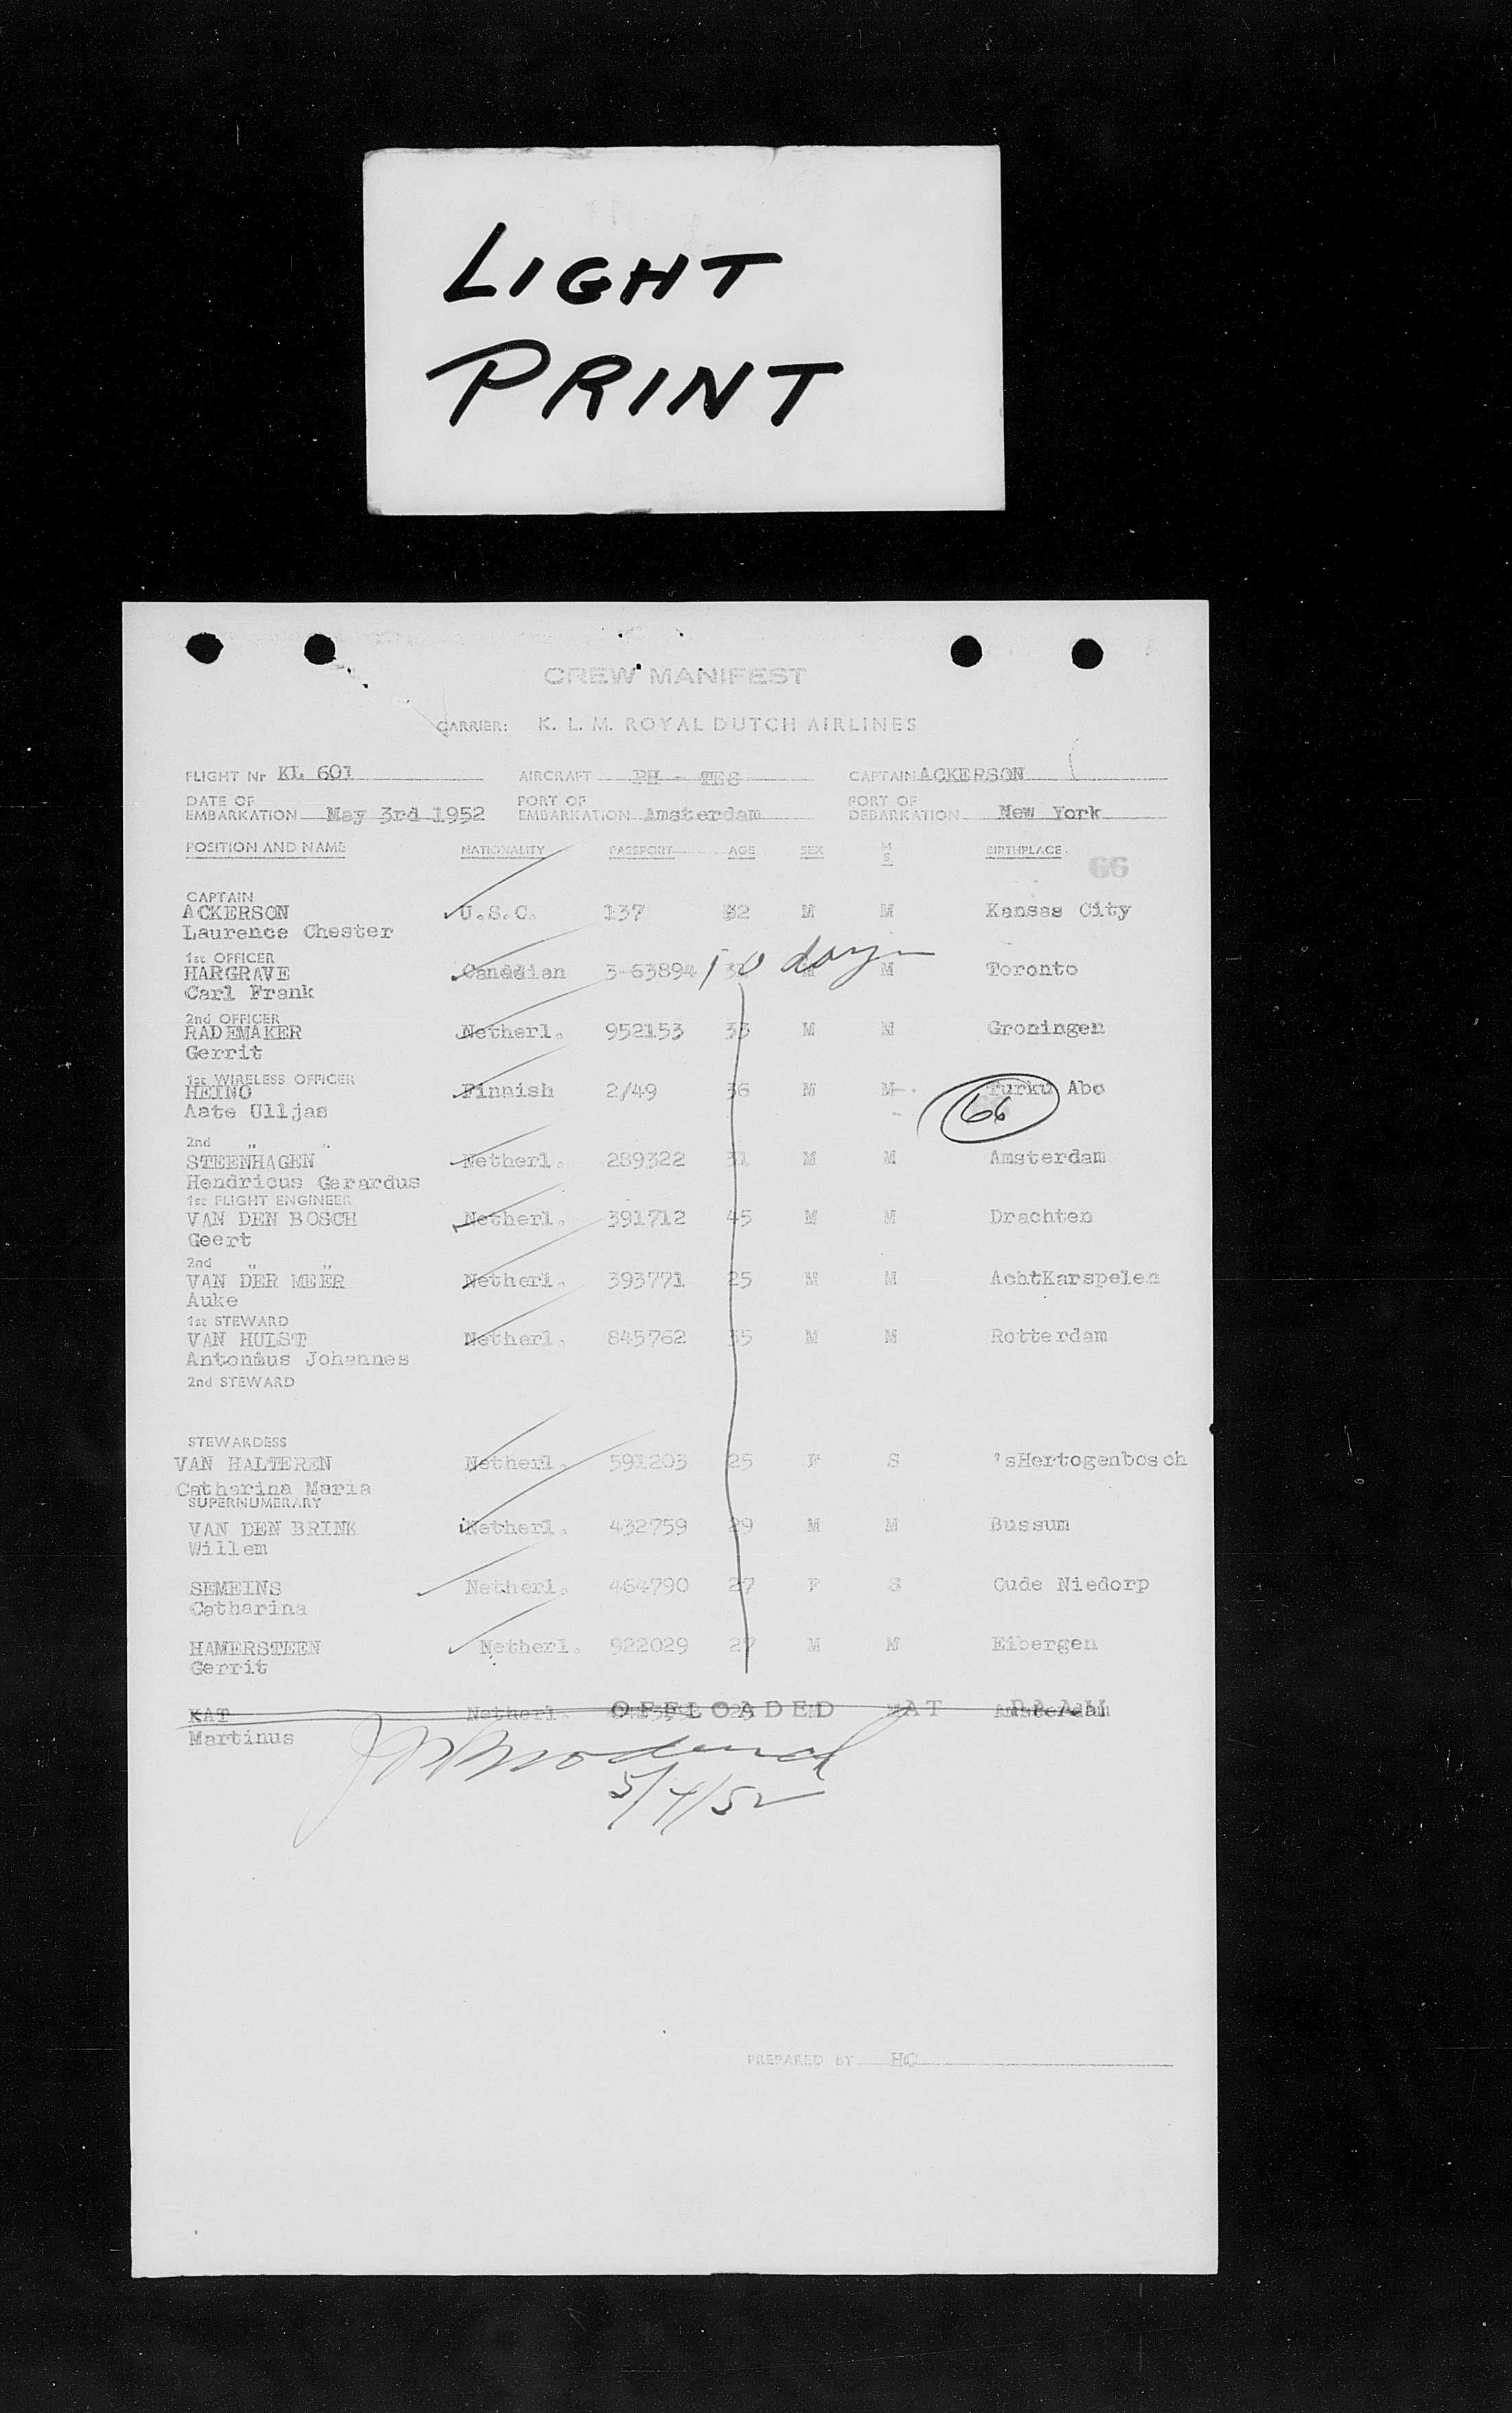 LIGHT
PRINT
CREW MANIFEST
CARRIER: K. L. M. ROYAL DUTCH AIRLINES
FLIGHT Nr KL 601 AIRCRAFT PH - TES CAPTAIN ACKERSON
DATE OF EMBARKATION May 3rd 1952 PORT OF EMBARKATION Amsterdam PORT OF DEBARKATION New York
POSITION AND NAME NATIONALITY PASSPORT AGE SEX M S BIRTHPLACE
66
CAPTAIN
ACKERSON U.S.C. 137 32 M M Kansas City
Laurence Chester
10 days
1st OFFICER
HARGRAVE Canadian 3-63894 M M Toronto
Carl Frank
2nd OFFICER
RADEMAKER Netherl. 952153 33 M M Groningen
Gerrit
1st WIRELESS OFFICER
HEINO Finnish 2/49 36 M M Turku Abo
Aate Ulljas
66
2nd " "
STEENHAGEN Netherl. 289322 31 M M Amsterdam
Hendricus Gerardus
1st FLIGHT ENGINEER
VAN DEN BOSCH Netherl. 391712 45 M M Drachten
Geert
2nd " "
VAN DER MEER Netherl. 393771 25 M M AchtKarspelen
Auke
1st STEWARD
VAN HULST Netherl. 845762 35 M M Rotterdam
Antonius Johannes
2nd STEWARD
STEWARDESS
VAN HALTEREN Netherl. 591203 25 F S 'sHertogenbosch
Catharina Maria
SUPERNUMERARY
VAN DEN BRINK Netherl. 432759 29 M M Bussum
Willem
SEMEINS Netherl. 464790 27 F S Oude Niedorp
Catharina
HAMERSTEEN Netherl. 922029 27 M M Eibergen
Gerrit
KAT Netherl. OFFLOADED AT Amsterdam
Martinus
5/4/52
PREPARED BY HC